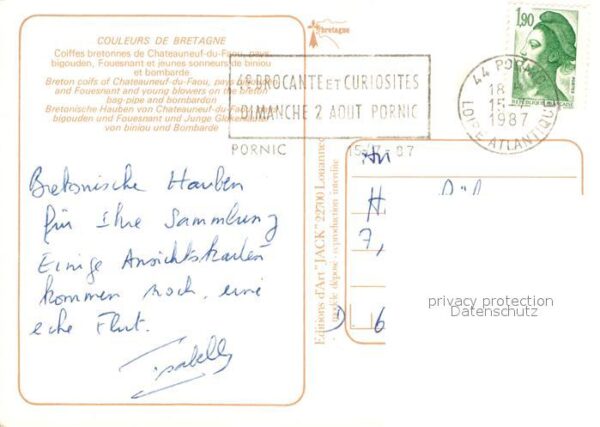 COULEURS DE BRETAGNE
Coiffes bretonnes de Chateauneuf-du-Faou, pays
bigouden, Fouesnant et jeunes sonneurs de biniou
et bombarde.
Breton coifs of Chateauneuf-du-Faou, pays bigouden
and Fouesnant and young blowers on the breton
bag-pipe and bombarden
Bretonische Hauben von Chateauneuf-du-Faou,
bigouden und Fouesnant und Junge Glocken
von biniou und Bombarde
bretagne
4e BROCANTE ET CURIOSITES
DIMANCHE 2 AOUT PORNIC
PORNIC
15-7-87
1,90
REPUBLIQUE FRANÇAISE
44 PORNIC
18
15-7
1987
LOIRE ATLANTIQUE
Bretonische Hauben
für Ihre Sammlung
Einige Ansichtskarten
kommen noch, eine
eche Flut.
Isabelle
Editions d'Art "JACK" 22700 Louannec
modèle déposé - reproduction interdite
An
H
7,
D 6
privacy protection
Datenschutz